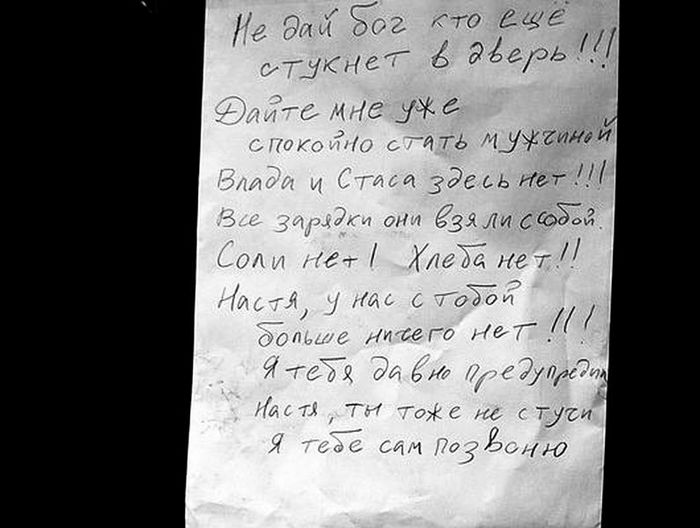 Не дай бог кто ещё
стукнет в дверь!!!
Дайте мне уже
спокойно стать мужчиной
Влада и Стаса здесь нет!!!
Все зарядки они взяли с собой.
Соли нет! Хлеба нет!!
Настя, у нас с тобой
больше ничего нет!!!
Я тебя давно предупредил
Настя, ты тоже не стучи
Я тебе сам позвоню